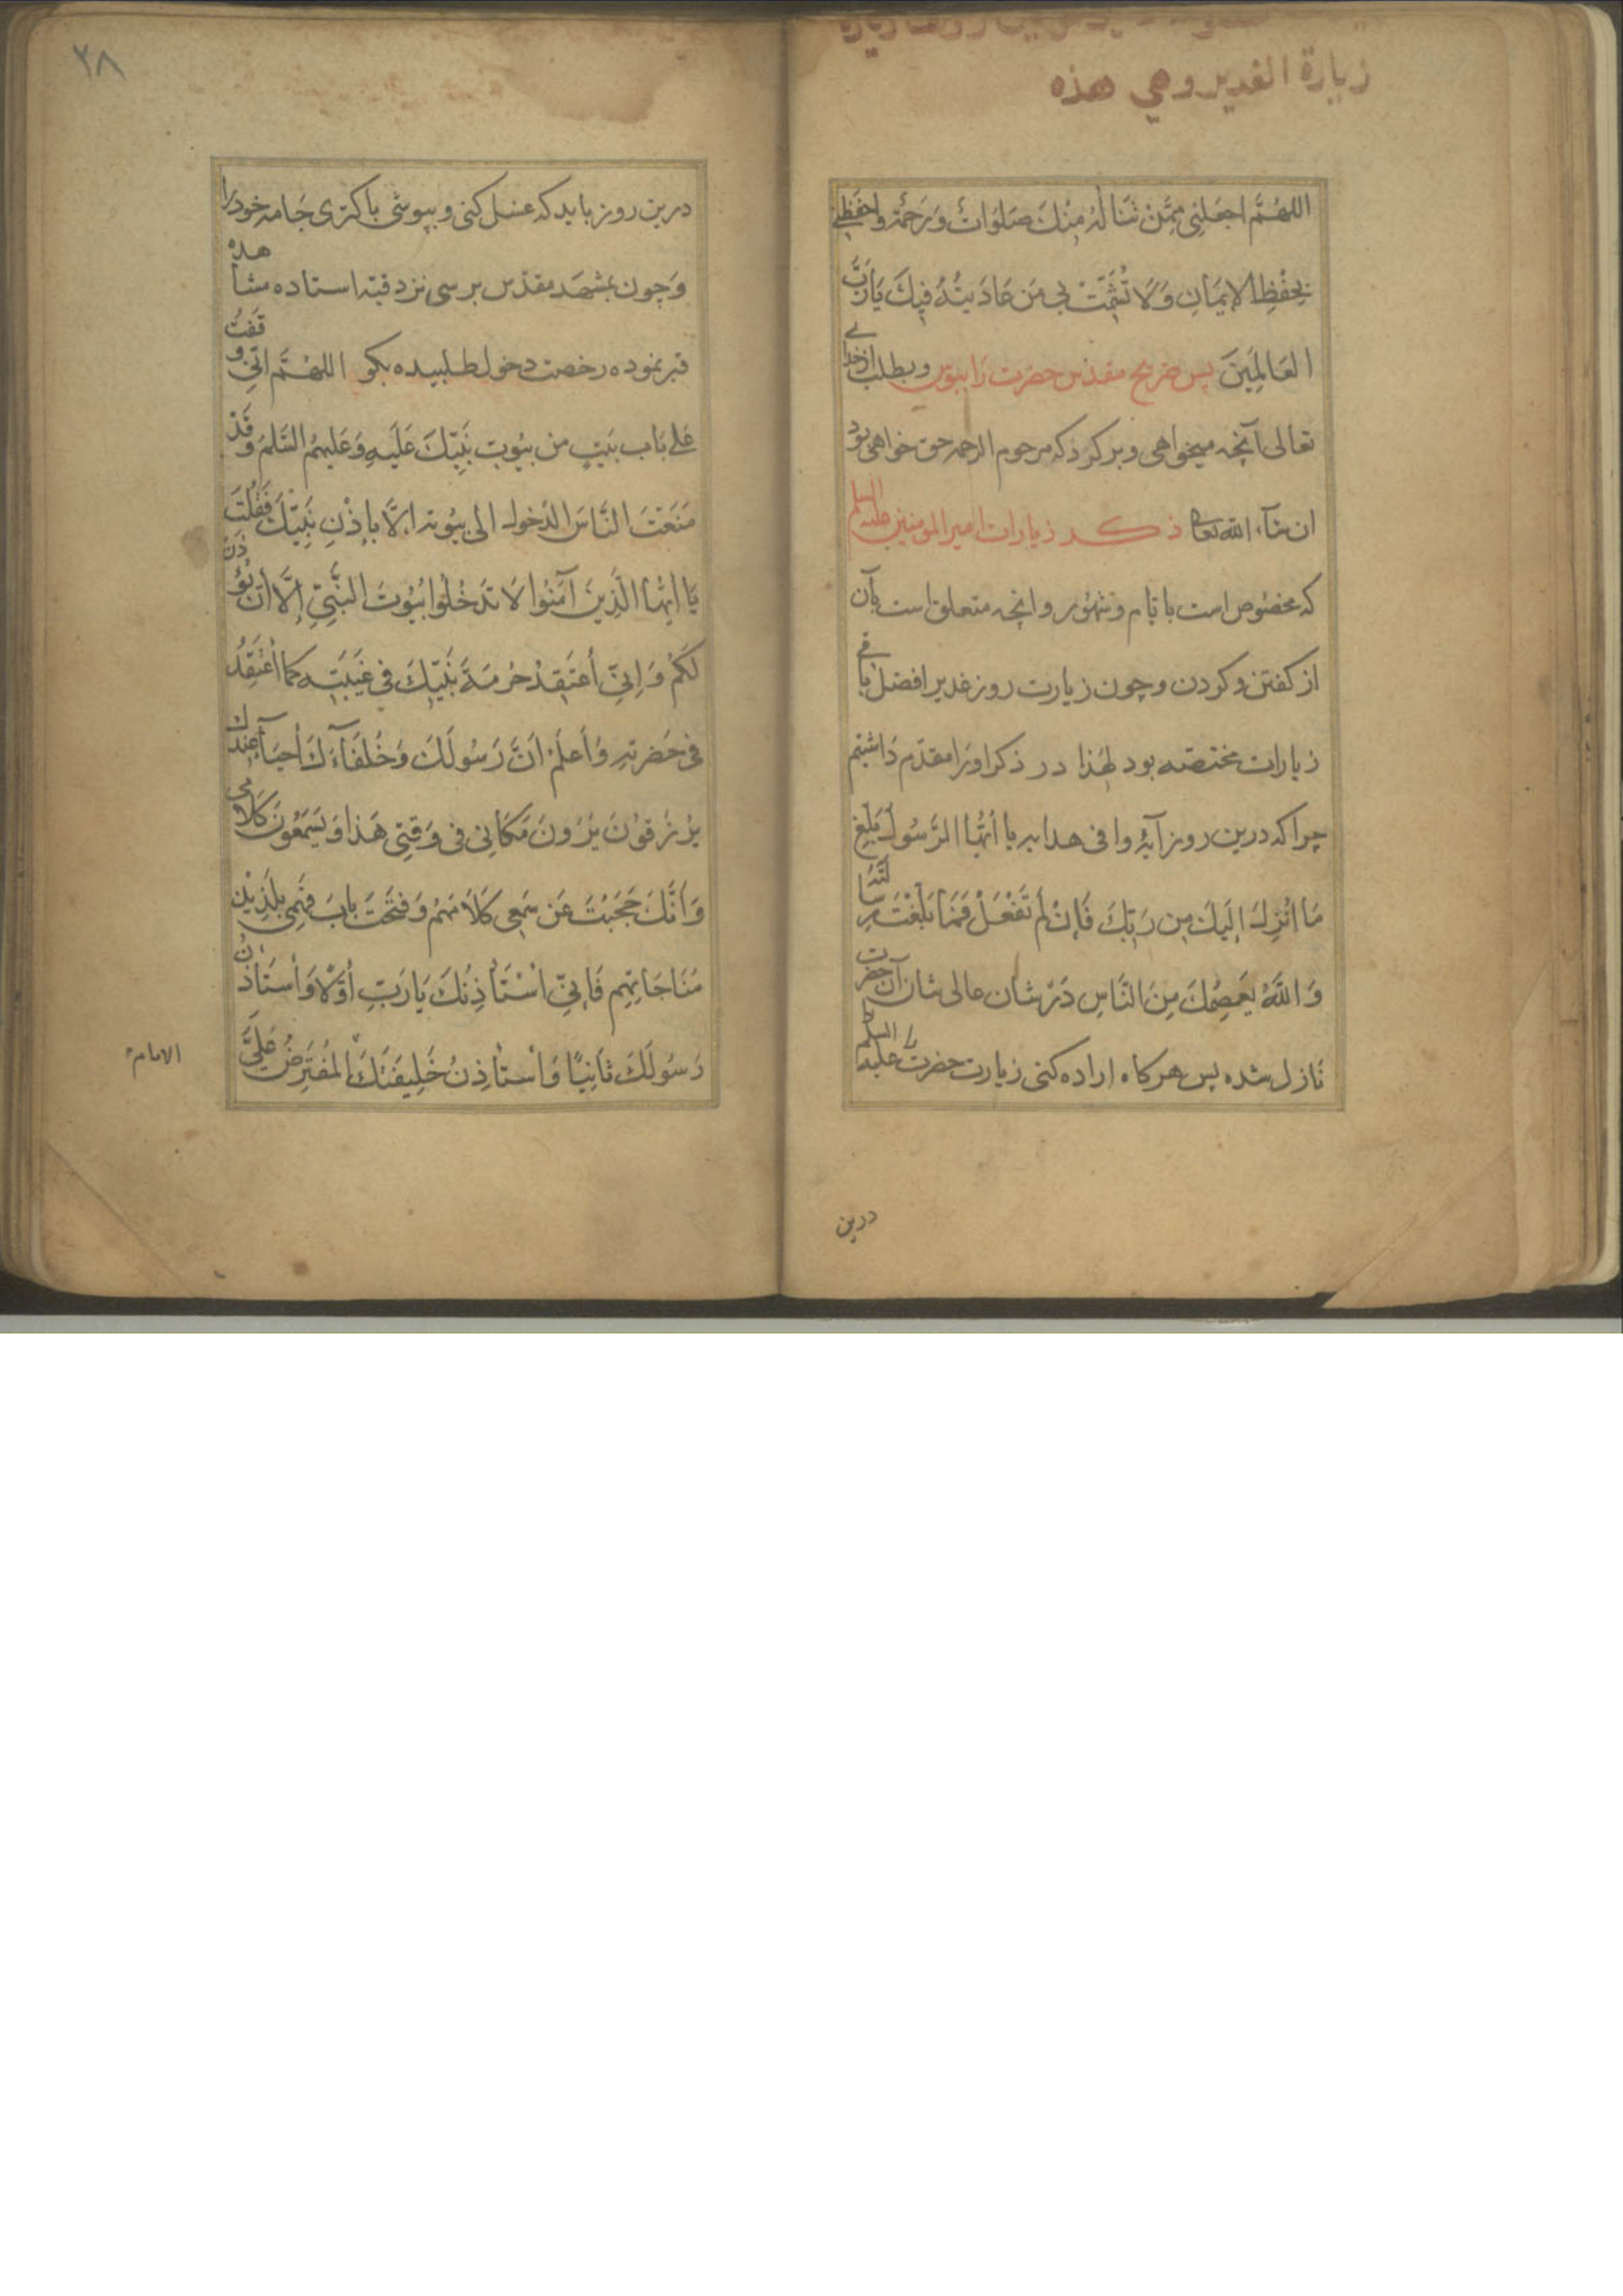 زيارة الغدير وهي هذه
اللهُمَّ اجعَلنِي مِمَّنْ تَنَالُهُ مِنْكَ صَلَوَاتٌ وَرَحْمَة واحفَظني
بِحِفْظِ الإيمَانِ وَلَا تُشْمِتْ بِي مَن عَادَيتُهُ فِيكَ يَا رَبَّ
العَالَمِينَ پس ضریح مقدّس حضرت را ببوس و بطلب از خدای
تعالی آنچه میخواهی و برکرد که مرحوم الرحمه حق خواهی بود
ان شآء الله تعالی ذکر زیارات امیر المومنین علیه السلم
که مخصوص است بایّام و شهور و انچه متعلق است بآن
از کفتن و کردن و چون زیارت روز غدیر افضل باقی
زیارات مختصّه بود لهٰذا در ذکر او را مقدّم داشتیم
چرا که درین روز آیهٔ وافی هدایه یا أَيُّهَا الرَّسُولُ بَلِّغْ
مَا أُنْزِلَ إِلَيكَ مِن رَبِّكَ فَإِنْ لَم تَفْعَلْ فَمَا بَلَّغْتَ رِسَالَتَهُ
وَاللَّهُ يَعصِمُكَ مِنَ النَّاسِ دَرْ شان عالی شان آن حضرت
نازل شده پس هرکاه اراده کنی زیارت حضرت را علیه السلم
درین
۳۸
درین روز باید که غسل کنی و بپوشی پاکتری جَامه خود را
وَچون بمشهَد مقدّس برسی نزد قبّه استاده مشاهده
قبر نموده رخصت دخول طلبیده بکو اللهُمَّ اِنّي وَقَفتُ
عَلى بَاب بَيتٍ من بيُوتِ نَبِيِّكَ عَلَيهِ وَعَليهِمُ السَّلمُ وَقَدْ
مَنَعْتَ النَّاسَ الدُخولَ الى بيُوتِه اِلَّا بِإِذْنِ نَبِيِّكَ فَقُلْتَ
يَا أَيُّهَا الَّذِينَ آمَنُوا لَا تَدْخُلُوا بُيُوتَ النَّبِيِّ إِلَّا أَنْ يُؤْذَنَ
لَكُمْ وَإِنِّي أَعْتَقِدُ حُرْمَةَ نَبِيِّكَ في غَيبَتِه كَمَا أَعْتَقِدُ
في حَضرتِهِ وَأَعلَمُ اَنَّ رَسُولَكَ وَخُلَفَآءَكَ أَحيَآءٌ عِندَكَ
يُرْزَقُونَ يَرَوْنَ مَكَانِي في وَقتِي هَذا وَيَسمَعُونَ كَلَامِي
وَأَنَّكَ حَجَبْتَ عَن سَمعِي كَلَامَهُمْ وَفَتَحْتَ بابَ فَهمِي بِلَذِيذِ
مُنَاجَاتِهِم فَإِنِّي اَسْتَأْذِنُكَ يَا رَبِّ أَوَّلًا وَأَستَأْذِنُ
رَسُولَكَ ثانِيًا وَأَستَأْذِنُ خَلِيفَتَكَ المُفتَرِضُ عَلَيَّ
الامام